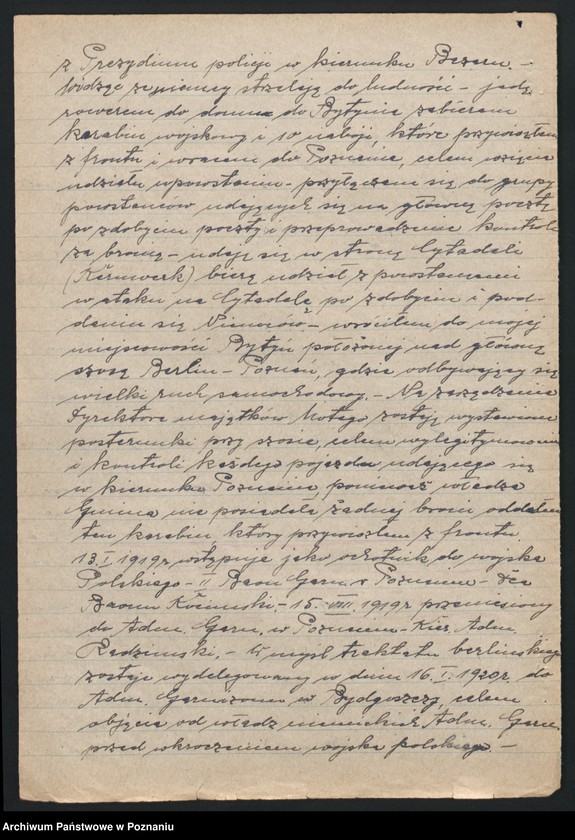 z Prezydium policji w kierunku Bazaru. –
widząc ze niemcy strzelają do ludności – jadę
rowerem do domu do Bytynia zabieram
karabin wojskowy i 10 naboji, które przywiozłem
z frontu i wracam do Poznania, celem wzięcia
udziału w powstaniu – przyłączam się do grupy
powstańców udających się na główną pocztę
po zdobyciu poczty i przeprowadzeniu kontroli
za bronią – udaję się w stronę Cytadeli
(Kernwerk) biorę udział z powstańcami
w ataku na Cytadelę po zdobyciu i pod-
daniu się Niemców – wróciłem do mojej
miejscowości Bytyń położonej nad główną
szosą Berlin – Poznań, gdzie odbywający się
wielki ruch samochodowy. – Na zarządzenie
Dyrektora majątków zostają wystawione
posterunki przy szosie, celem wylegitymowania
i kontroli każdego pojazdu udającego się
w kierunku Poznania, ponieważ władza
Gminna nie posiadała żadnej broni oddałem
ten karabin, który przywiozłem z frontu.
13.I 1919r wstępuję jako ochotnik do wojska
Polskiego – II Baon Garn. w Poznaniu – Dca
Baonu – 15. VIII 1919r przeniesiony
do Adm. Garn. w Poznaniu – Kier. Adm.
Radzimski. – W myśl traktatu berlińskiego
zostaję wydelegowany w dniu 16.I.1920r. do
Adm. Garnizonu w Bydgoszczy, celem
objęcia od władz niemieckich Adm. Garn.
przed wkroczeniem wojska polskiego. –
Archiwum Państwowe w Poznaniu